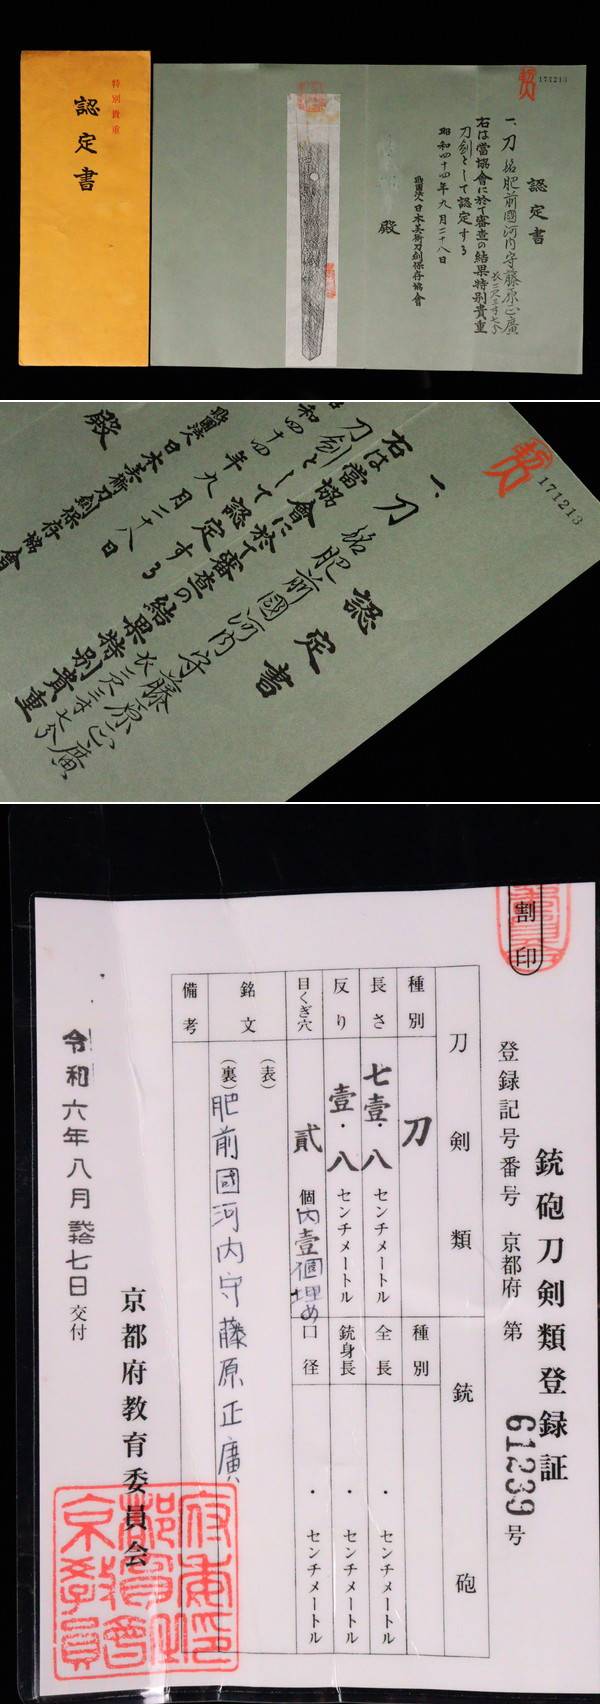 特別貴重
認定書
171213
認定書
一、刀 銘 肥前國河内守藤原正廣
長二尺三寸七分
右は當協會に於て審査の結果特別貴重
刀剣として認定する
昭和四十四年九月二十八日
財團法人日本美術刀剣保存協會
殿
171213
認定書
一、刀 銘 肥前國河内守藤原正廣
長二尺三寸七分
右は當協會に於て審査の結果特別貴重
刀剣として認定する
和四十四年九月二十八日
財團法人日本美術刀剣保存協會
殿
割印
銃砲刀剣類登録証
登録記号番号 京都府 第 61239 号
刀剣類
銃砲
種別 刀
種別
長さ 七壹・八 センチメートル
全長 ・ センチメートル
反り 壹・八 センチメートル
銃身長 ・ センチメートル
目くぎ穴 貳 個 内壹個埋め
口径 ・ センチメートル
銘文
(表)
(裏) 肥前國河内守藤原正廣
備考
令和六年八月 七日 交付
京都府教育委員会